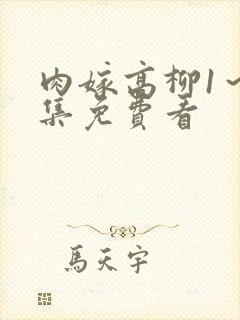 肉嫁高柳1~
集免费看
馬天宇